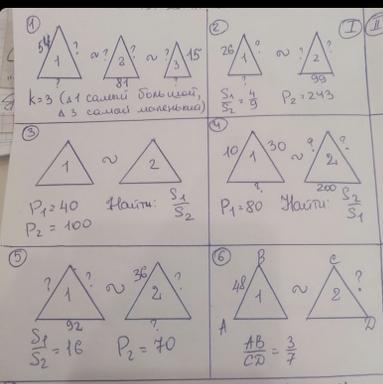 I II
1
54 ? ~ ? ? ~ ? 15
1 2 3
? 81 ?
K=3 (Δ1 самый большой,
Δ3 самый маленький)
2
26 ? ~ ? ?
1 2
? 99
S1/S2 = 4/9 P2 = 243
3
1 ~ 2
P1 = 40 Найти: S1/S2
P2 = 100
4
10 1 30 ~ ? 2 ?
? 200
P1 = 80 Найти: S2/S1
5
? 1 ? ~ 36 2 ?
92 ?
S1/S2 = 16 P2 = 70
6
B C
48 1 ~ 2 ?
A D
AB/CD = 3/7